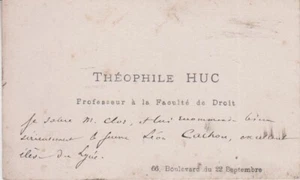 THÉOPHILE HUC
Professeur à la Faculté de Droit
Je salue M. Clos, et lui recommande bien
sincèrement le jeune Léon Cachou, excellent
élève du lycée.
66, Boulevard du 22 Septembre